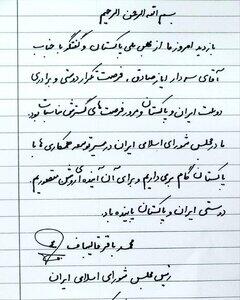 بسم الله الرحمن الرحیم
بازدید امروز ما از مجلس ملی پاکستان و گفتگو با جناب
آقای سردار ایاز صادق، فرصت تکرار دوستی و برادری
دولت ایران و پاکستان و مرور فرصت‌های گسترش مناسبات بود.
ما در مجلس شورای اسلامی ایران در مسیر توسعه همکاری‌ها با
پاکستان گام برمی‌داریم و برای آن آینده‌ی روشن متصوریم.
دوستی ایران و پاکستان پاینده باد.
محمد باقر قالیباف
رئیس مجلس شورای اسلامی ایران